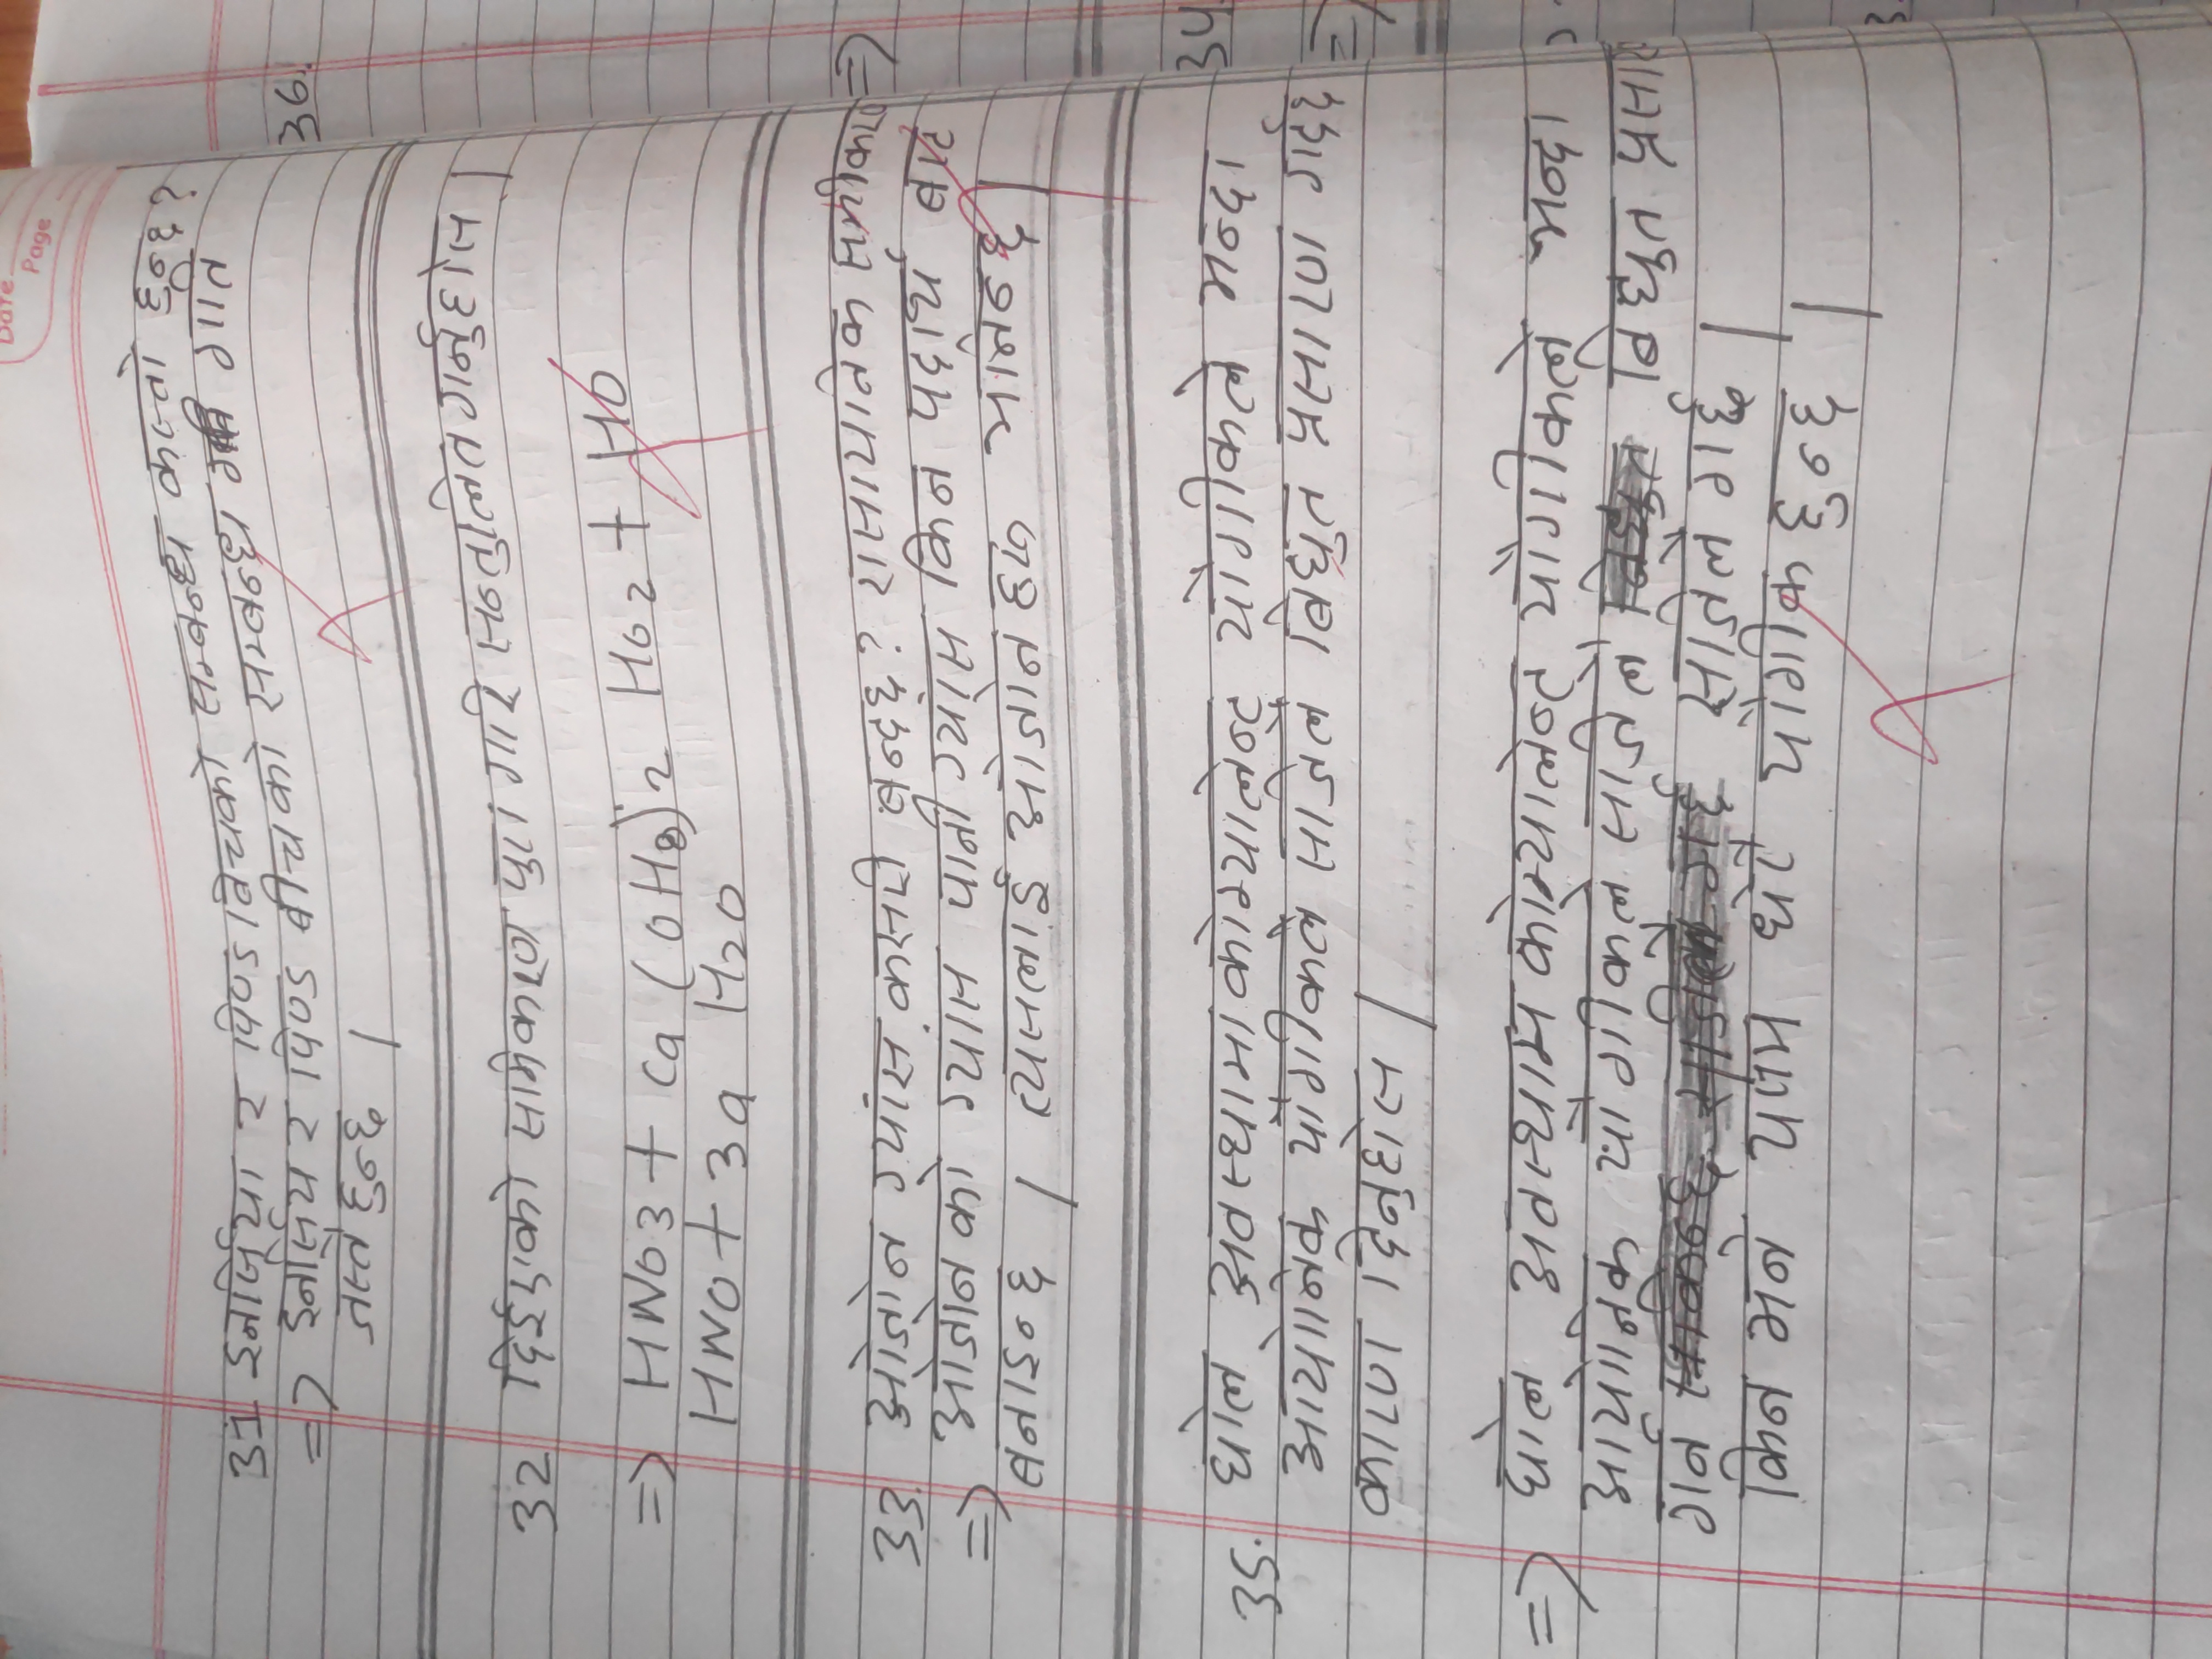 Date
Page
31 इनर्जिया र पिण्ड बिचको सम्बन्ध कस्तो हुन्छ?
=> इनर्सिय र पिण्ड बीचको सम्बन्ध गति
जस्तै हुन्छ ।
32 दिईएको समिकरण पुरा गरि सन्तुलित गर्नुहोस ।
=> HNO3 + Ca (OH)2 HO2 + HO
HNO + 3a H2O
33. ओजोन ग्यांस कसरी बन्दछ? रासायनिक समीकरण
=> ओजोन को ग्यांस पानी ग्यांस किन पदार्थ बाट
बनाइन्छ । त्यसलाई ओजोन हरु भनिन्छ ।
35. घोल अवस्थामा कोभ्यालेन्ट यौगीकले भन्दा
आयोनिक यौगीकले सजिलै बिधुत प्रसारण गर्दछ
कारण दिनुहोस ।
=> घोल अवस्थाम कोभ्यालेन्ट यौगीकले भन्दा
आयोनिक यौगीकले सजिलै बिधुत प्रसार
गर्न सजिलै गर्छ ।
किन भने यसम धेरै यौगीक हुन्छ ।
36.
=>
34
=>